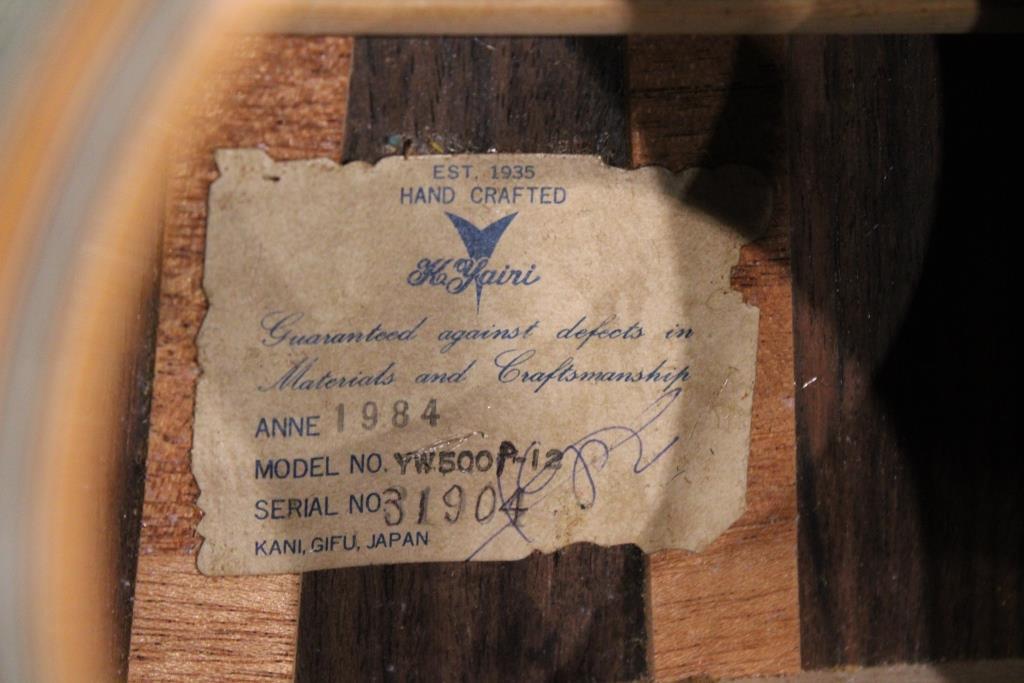 EST. 1935
HAND CRAFTED
K.Yairi
Guaranteed against defects in
Materials and Craftsmanship
ANNE 1984
MODEL NO. YW500P-12
SERIAL NO 31904
KANI, GIFU, JAPAN